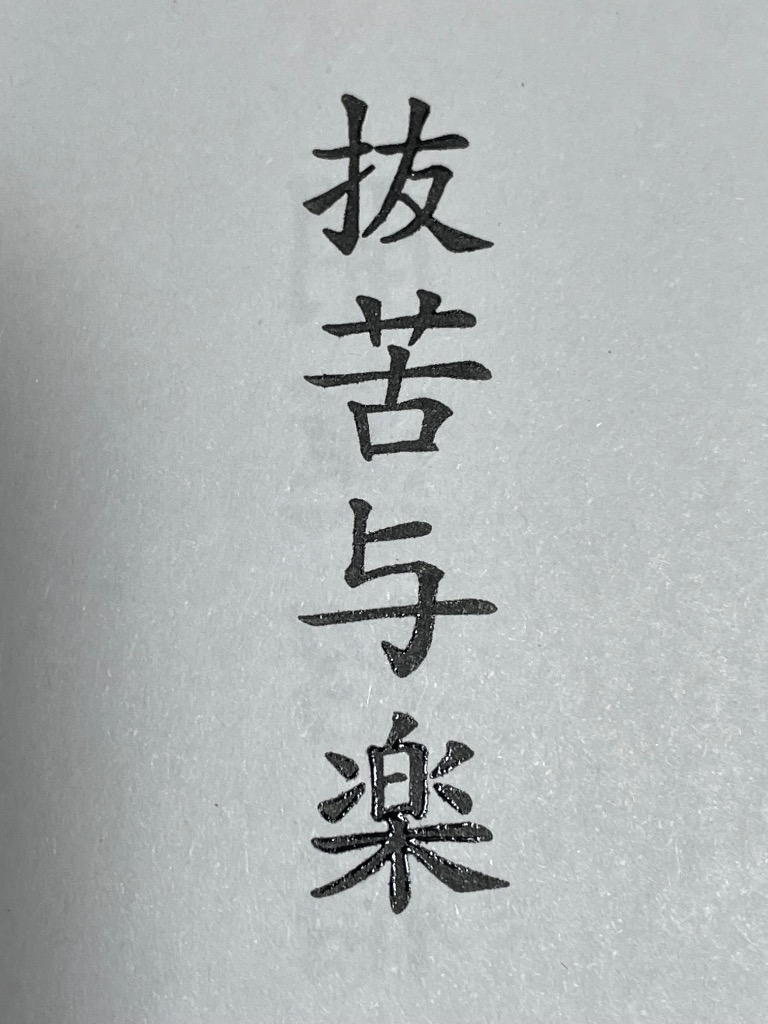 抜苦与楽